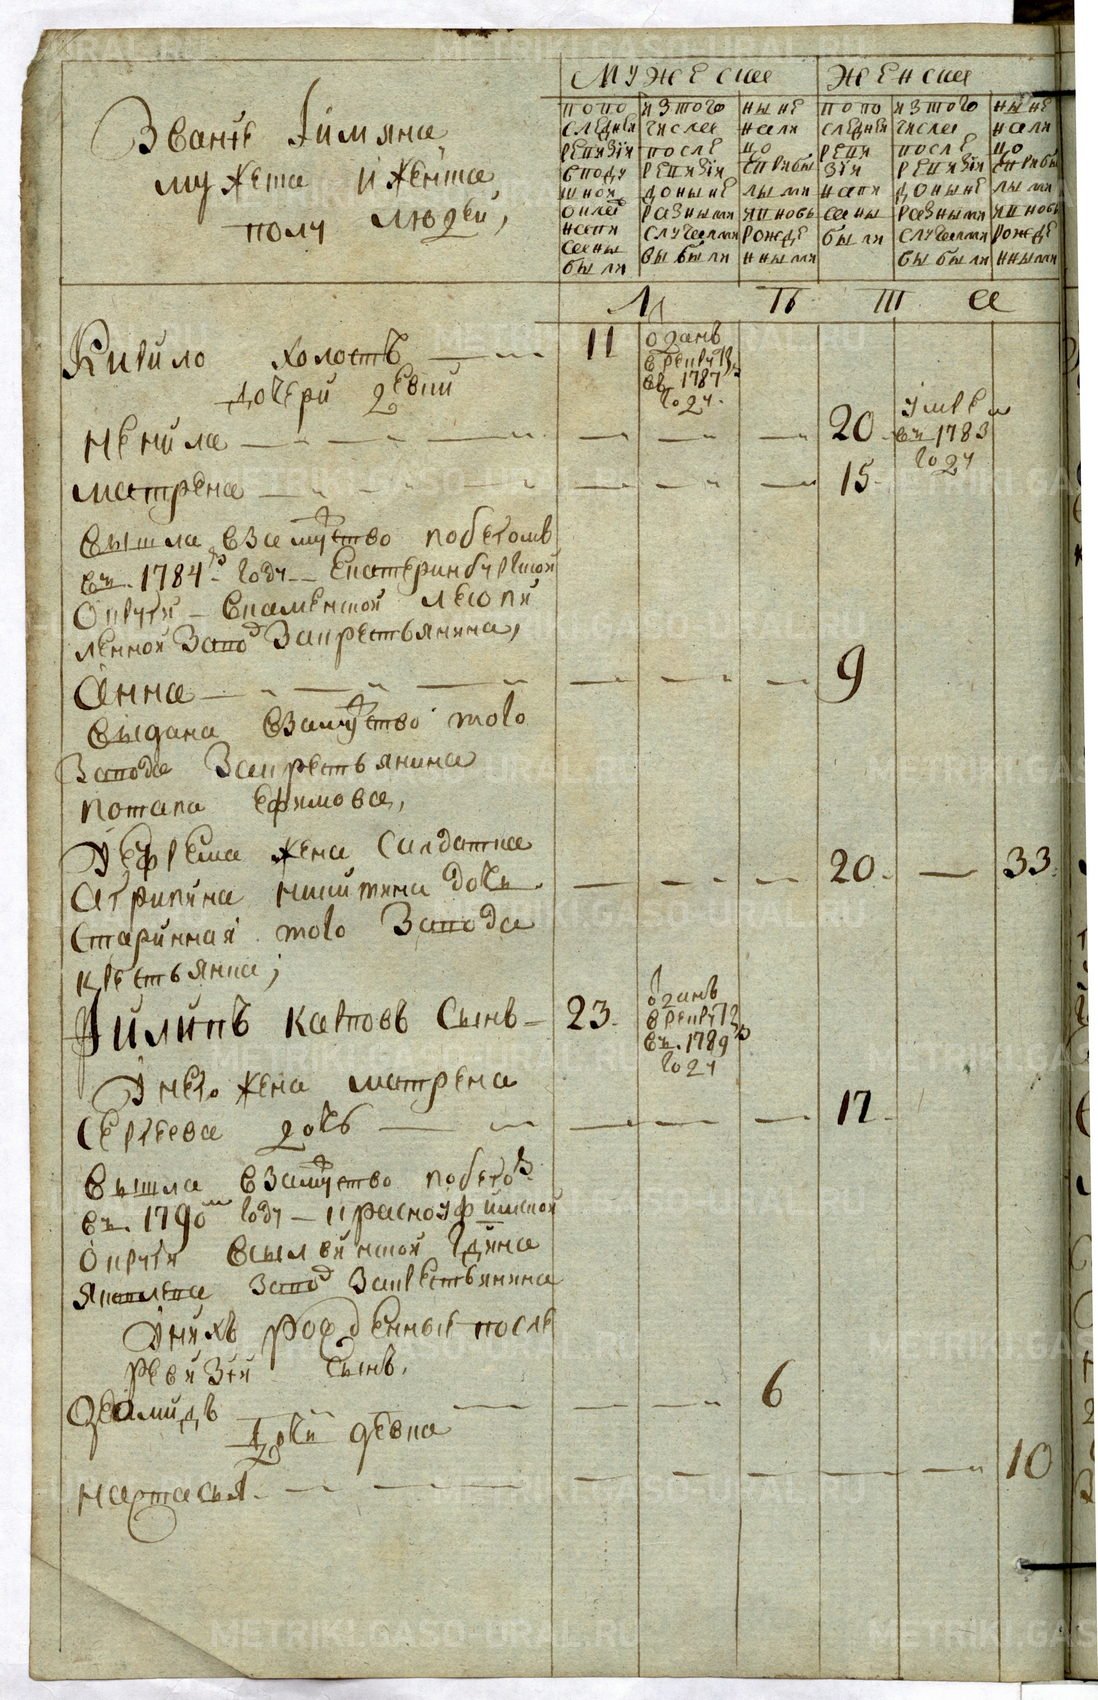 Званіе Iимяна
мужеска иженска
полу людей,
Мужески
Женски
попо
следнеи
ревизіи
вподу
шной
окла
напи
саны
были
изтого
числа
после
ревизіи
доныне
разными
случаями
выбыли
ныне
нали
цо
сприбы
лыми
ивновь
рожде
нными
попо
следнеи
реви
зіи
напи
саны
были
изтого
числа
после
ревизіи
доныне
разными
случаями
выбыли
ныне
нали
цо
сприбы
лыми
ивновь
рожде
нными
Кирило холостъ 11 отданъ
врекруты
въ 1787м
году.
дочери девки
Ненила 20. умерла
въ 1783
году
матрена 15.
вышла взамужство побегомъ
въ. 1784м году Екатеринбургской
округи вкаменской
завод закрестьянина,
Анна 9
выдана взамужство того
завода закрестьянина
потапа Ефимова,
Уефрема жена салдатка
Агрипина никитина дочь 20. 33.
старинная того завода
крестьянка;
Филипъ карповъ сынъ 23. отданъ
врекруты
въ. 1789м
году
Унего жена матрена
Сергеева дочь 17.
вышла взамужство побегом
въ. 1790м году красноуфимской
округи
завод закрестьянина
Унихъ рожденные после
ревизіи сынъ.
Диомидъ 6
дочь девка
настасья. 10
METRIKI.GASO-URAL.RU